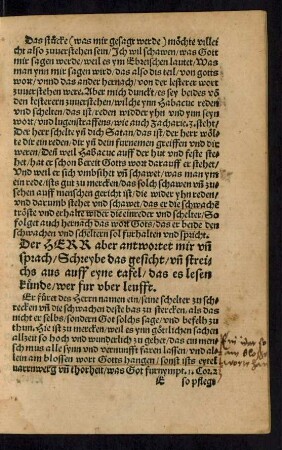 Das stücke (was mir gesagt werde) möchte villei
cht also zuuerstehen sein / Ich wil schawen / was Gott
mir sagen werde / weil es ym Ebreischen lautet / Was
man ynn mir sagen wird / das also dis teil / von gotts
wort / vnnd das ander hernach / von der lesterer wort
zuuerstehen were. Aber mich dunckt / es sey beides võ
den lesterern zuuerstehen / wilche ynn Habacuc reden
vnd schelten / das ist / reden widder yhn vnd seyn
wort / vnd lugenstraffens / wie auch Zacharie. 3. stehet /
der Herr schelte yñ dich Satan / das ist / der herr wöl
te dir ein reden / dir yn dein furnemen greiffen vnd dir
weren / Deñ weil Habacuc auff der hut vnd feste ste
het / hat er schon bereit Gotts wort darauff er stehet /
Und weil er sich vmbsihet vñ schawet / was man ym
ein rede / ists gut zu mercken / das solch schawen vñ zu
sehen auff menschen gericht ist / die wider yhn reden /
vnd darumb stehet vnd schawet / das er die schwachē
tröste vnd erhalte wider die einreder vnd schelter / So
folget auch hernach das wort Gots / das er beide den
schwachen vnd scheltern sol furhalten vnd spricht.
Der HERR aber antwortet mir vñ
sprach / Schreybe das gesicht / vñ streich
chs aus auff eyne tafel / das es lesen
künde / wer fur vber leufft.
Er füret des Herrn namen ein / seine schelter zu sch
recken vñ die schwachen deste bas zu stercken / als das
nicht er selbs / sondern Got solchs sage / vnd befelh zu
thun. Hie ist zu mercken / weil es ynn götlichen sachen
allzeit so hoch vnd wünderlich zu gehet / das ein men
sch mus alle synn vnd vernunfft faren lassen / vnd al
lein am blossen wort Gotts hangen / sonst ists eytel
narrnwerg vñ thorheit / was Got furnympt. 1. Cor. 2
E so pflegt